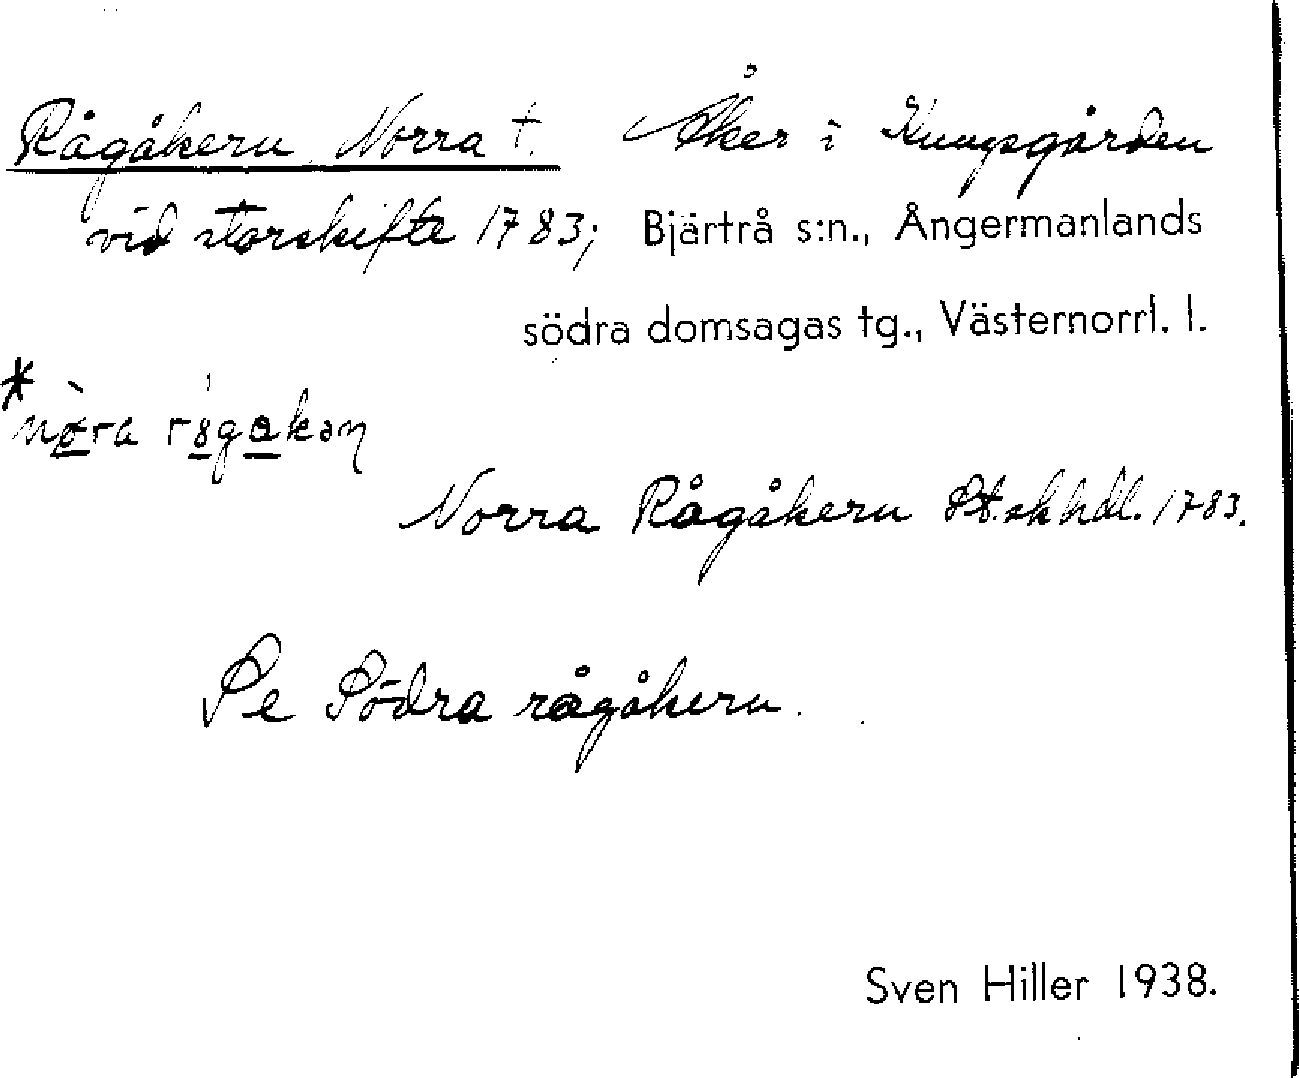 Rågåkern Norra †. Åker i Kungsgården
vid storskifte 1783; Bjärtrå s:n., Ångermanlands
södra domsagas tg., Västernorrl. l.
Norra Rågåkern St.sk.hdl. 1783.
Se Södra rågåkern.
Sven Hiller 1938.